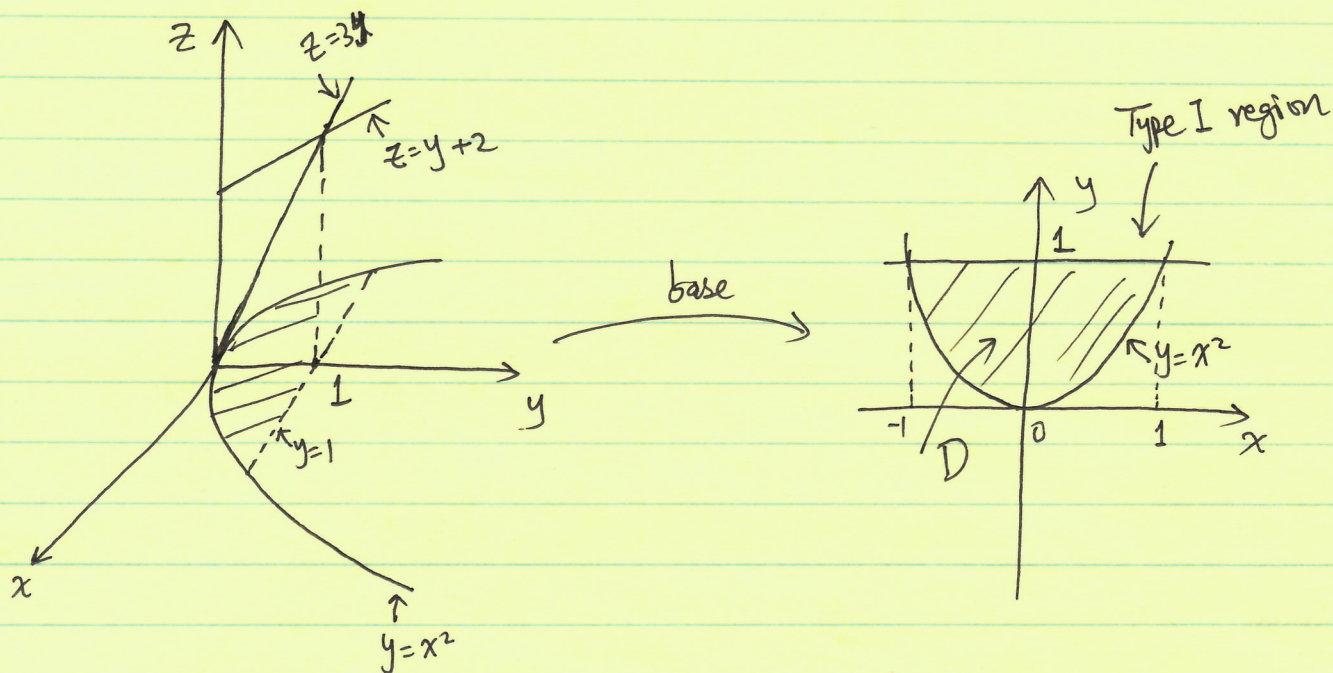 z
z=3y
z=y+2
1
y
y=1
x
y=x²
base
Type I region
y
1
y=x²
-1
0
1
x
D